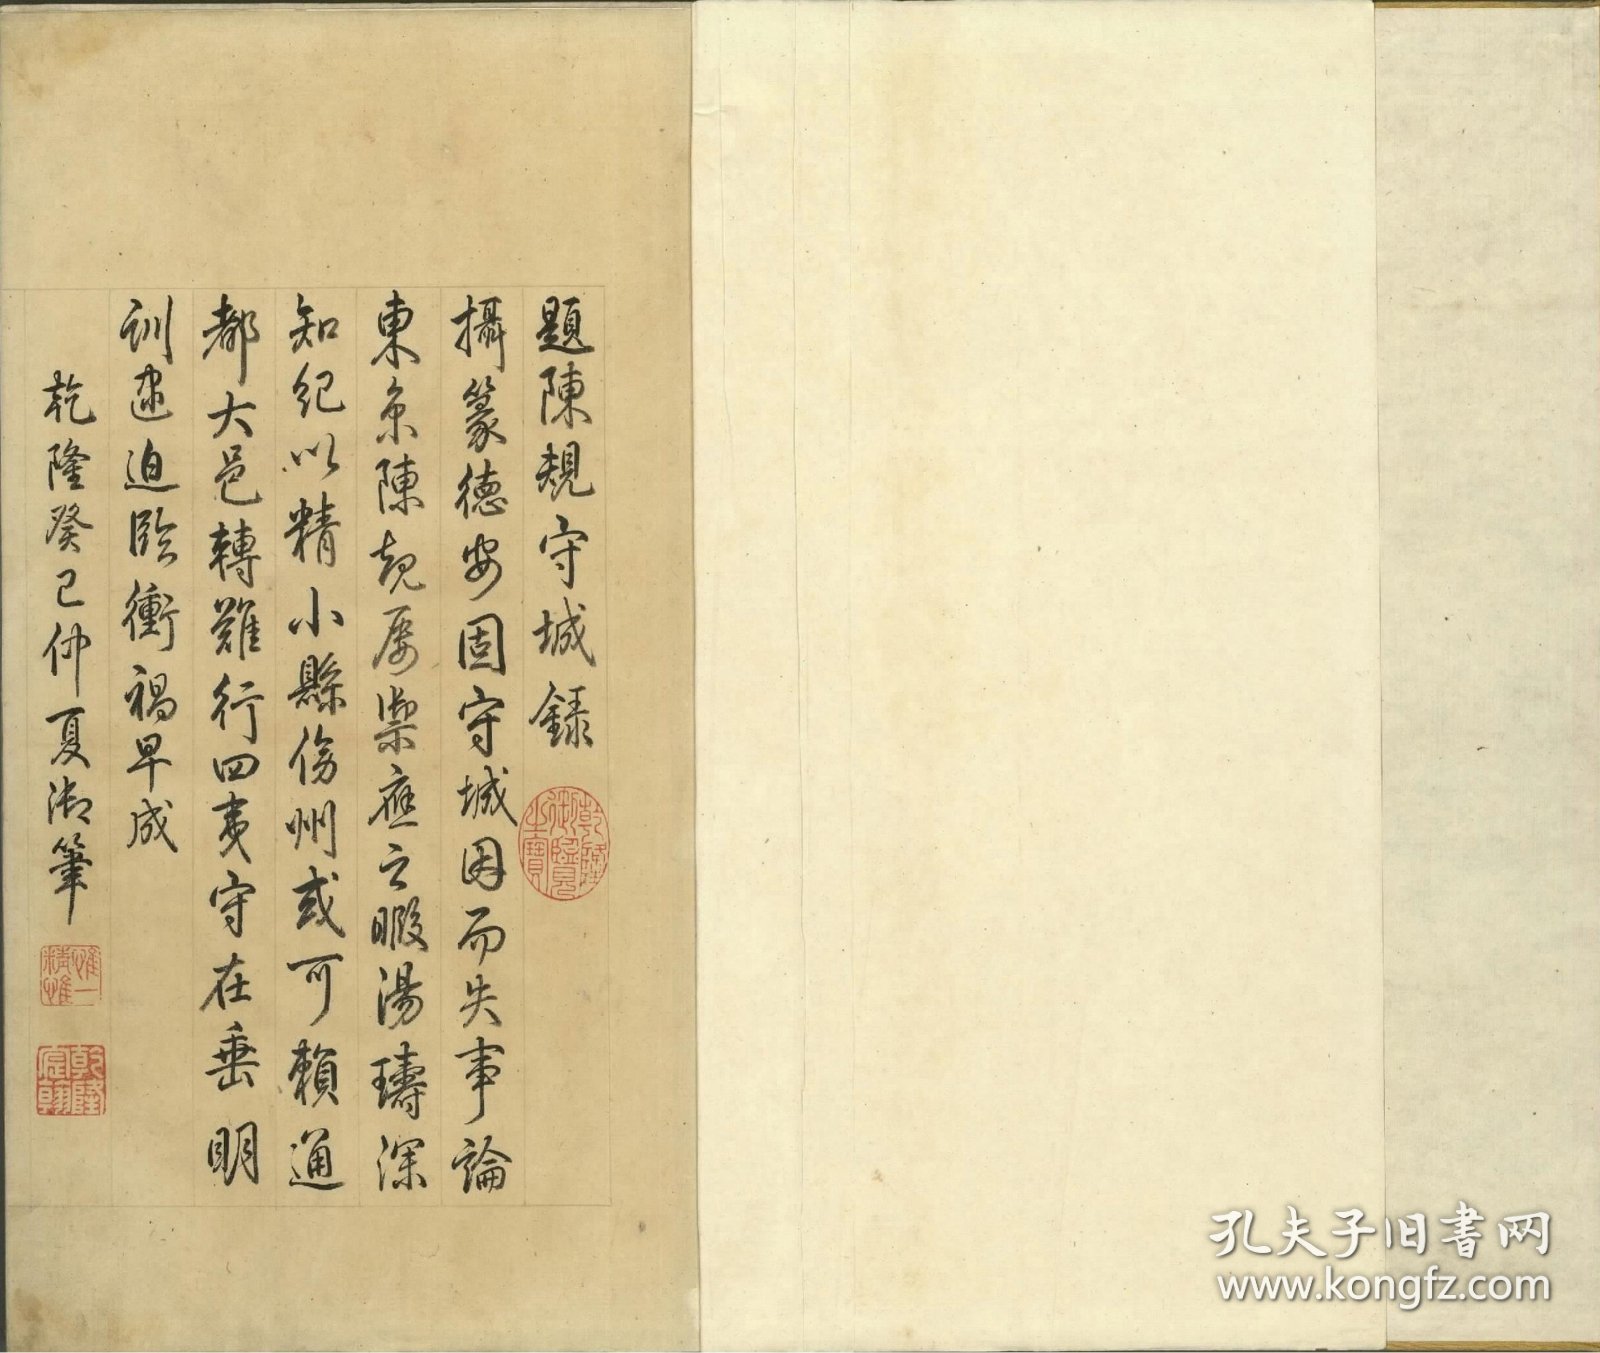 題陳規守城録
乾隆御覽之寶
攝篆德安固守城因而失事論
東京陳規屢禦應之暇湯璹深
知紀以精小縣傍州或可賴通
都大邑轉難行四夷守在垂明
訓逮迫臨衝禍早成
乾隆癸巳仲夏御筆
惟精惟一
乾隆宸翰
孔夫子旧书网
www.kongfz.com